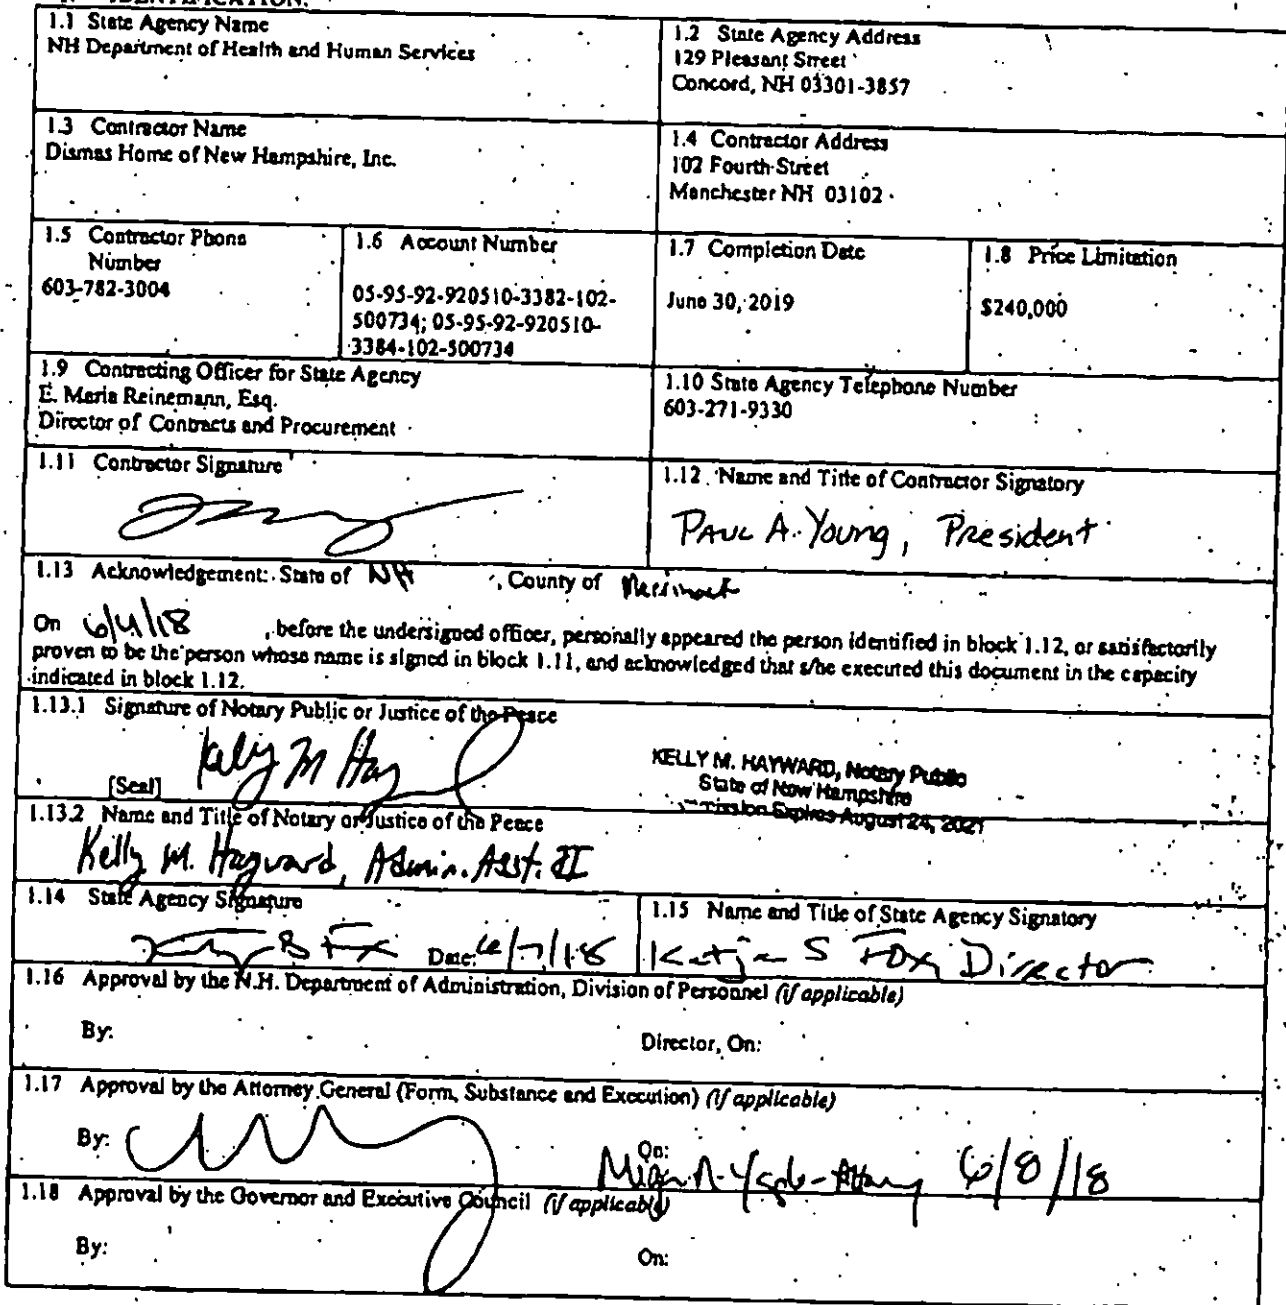 IDENTIFICATION.
1.1 State Agency Name
NH Department of Health and Human Services
1.2 State Agency Address
129 Pleasant Street
Concord, NH 03301-3857
1.3 Contractor Name
Dismas Home of New Hampshire, Inc.
1.4 Contractor Address
102 Fourth Street
Manchester NH 03102
1.5 Contractor Phone
Number
603-782-3004
1.6 Account Number
05-95-92-920510-3382-102-
500734; 05-95-92-920510-
3384-102-500734
1.7 Completion Date
June 30, 2019
1.8 Price Limitation
$240,000
1.9 Contracting Officer for State Agency
E. Maria Reinemann, Esq.
Director of Contracts and Procurement
1.10 State Agency Telephone Number
603-271-9330
1.11 Contractor Signature
1.12 Name and Title of Contractor Signatory
Paul A. Young, President
1.13 Acknowledgement: State of NH , County of Merrimack
On 6/4/18 , before the undersigned officer, personally appeared the person identified in block 1.12, or satisfactorily
proven to be the person whose name is signed in block 1.11, and acknowledged that s/he executed this document in the capacity
indicated in block 1.12.
1.13.1 Signature of Notary Public or Justice of the Peace
Kelly M Hay
[Seal]
KELLY M. HAYWARD, Notary Public
State of New Hampshire
mission Expires August 24, 2021
1.13.2 Name and Title of Notary or Justice of the Peace
Kelly M. Hayward, Admin. Asst. II
1.14 State Agency Signature
Date: 6/7/18
1.15 Name and Title of State Agency Signatory
Katja S Fox, Director
1.16 Approval by the N.H. Department of Administration, Division of Personnel (if applicable)
By:
Director, On:
1.17 Approval by the Attorney General (Form, Substance and Execution) (if applicable)
By:
On:
6/8/18
1.18 Approval by the Governor and Executive Council (if applicable)
By:
On: